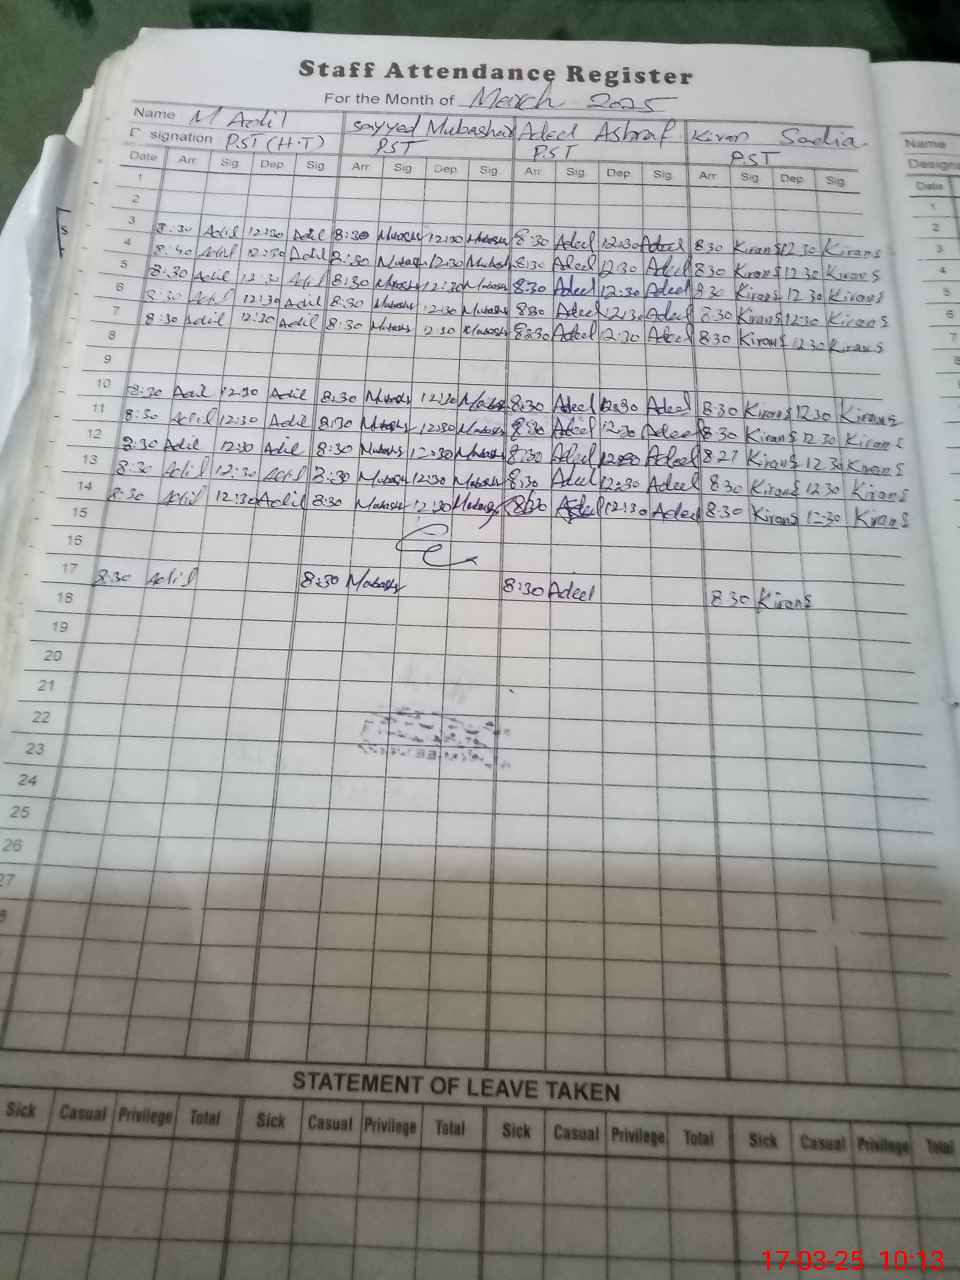 Staff Attendance Register
For the Month of March 2025
Name M Adil Sayyed Mubashar Adeel Ashraf Kiran Sadia Name
signation PST (H.T) PST P.ST P.ST Design
Date Arr. Sig. Dep. Sig Arr. Sig. Dep. Sig. Arr. Sig. Dep. Sig. Arr. Sig. Dep. Sig. Date
1 1
2 2
3 8:30 Adil 12:30 Adil 8:30 Mubashr 12:30 Mubashr 8:30 Adeel 12:30 Adeel 8:30 Kirans 12:30 Kirans 3
4 8:40 Adil 12:30 Adil 8:30 Mubash 12:30 Mubash 8:30 Adeel 12:30 Adeel 8:30 Kirans 12:30 Kirans 4
5 8:30 Adil 12:30 Adil 8:30 Mubash 12:30 Mubashr 8:30 Adeel 12:30 Adeel 8:30 Kirans 12:30 Kirans 5
6 8:30 Adil 12:30 Adil 8:30 Mubashr 12:30 Mubashr 8:30 Adeel 12:30 Adeel 8:30 Kirans 12:30 Kirans 6
7 8:30 Adil 12:30 Adil 8:30 Mubashr 12:30 Mubashr 8:30 Adeel 12:30 Adeel 8:30 Kirans 12:30 Kirans 7
8
9
10 8:30 Adil 12:30 Adil 8:30 Mubashr 12:30 Mubashr 8:30 Adeel 12:30 Adeel 8:30 Kirans 12:30 Kirans
11 8:30 Adil 12:30 Adil 8:30 Mubashr 12:30 Mubashr 8:30 Adeel 12:30 Adeel 8:30 Kirans 12:30 Kirans
12 8:30 Adil 12:30 Adil 8:30 Mubashr 12:30 Mubashr 8:30 Adeel 12:30 Adeel 8:27 Kirans 12:30 Kirans
13 8:30 Adil 12:30 Adil 8:30 Mubashr 12:30 Mubashr 8:30 Adeel 12:30 Adeel 8:30 Kirans 12:30 Kirans
14 8:30 Adil 12:30 Adil 8:30 Mubashr 12:30 Mubashr 8:30 Adeel 12:30 Adeel 8:30 Kirans 12:30 Kirans
15
16
17 8:30 Adil 8:30 Mubashr 8:30 Adeel 8:30 Kirans
18
19
20
21
22
23
24
25
26
27
STATEMENT OF LEAVE TAKEN
Sick Casual Privilege Total Sick Casual Privilege Total Sick Casual Privilege Total Sick Casual Privilege Total
17-03-25 10:13